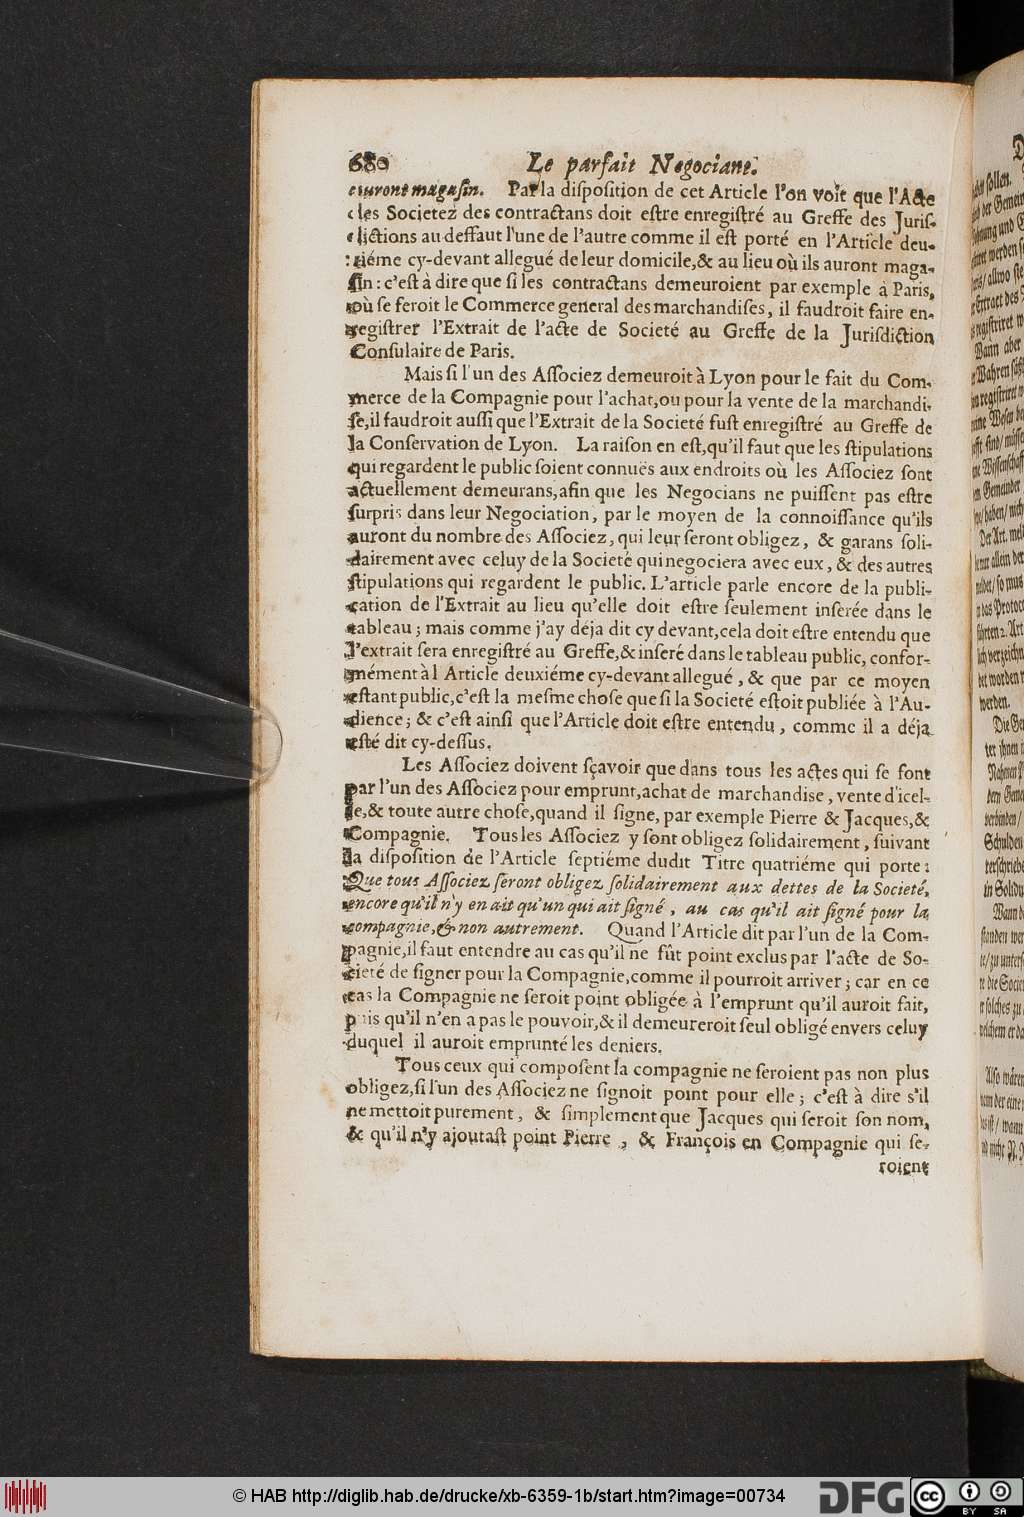 680 Le parfait Negociant.
auront magasin. Par la disposition de cet Article l'on voit que l'Acte
des Societez des contractans doit estre enregistré au Greffe des Juris-
dictions au deffaut l'une de l'autre comme il est porté en l'Article deu-
xiéme cy-devant allegué de leur domicile,& au lieu où ils auront maga-
sin: c'est à dire que si les contractans demeuroient par exemple à Paris,
où se feroit le Commerce general des marchandises, il faudroit faire en-
registrer l'Extrait de l'acte de Societé au Greffe de la Jurisdiction
Consulaire de Paris.
Mais si l'un des Associez demeuroit à Lyon pour le fait du Com-
merce de la Compagnie pour l'achat,ou pour la vente de la marchandi-
se,il faudroit aussi que l'Extrait de la Societé fust enregistré au Greffe de
la Conservation de Lyon. La raison en est,qu'il faut que les stipulations
qui regardent le public soient connuës aux endroits où les Associez sont
actuellement demeurans,afin que les Negocians ne puissent pas estre
surpris dans leur Negociation, par le moyen de la connoissance qu'ils
auront du nombre des Associez, qui leur seront obligez, & garans soli-
dairement avec celuy de la Societé qui negociera avec eux, & des autres
stipulations qui regardent le public. L'article parle encore de la publi-
cation de l'Extrait au lieu qu'elle doit estre seulement inserée dans le
tableau; mais comme j'ay déja dit cy devant,cela doit estre entendu que
l'extrait sera enregistré au Greffe,& inseré dans le tableau public, confor-
mément à l Article deuxiéme cy-devant allegué, & que par ce moyen
estant public,c'est la mesme chose que si la Societé estoit publiée à l'Au-
dience; & c'est ainsi que l'Article doit estre entendu, comme il a déja
esté dit cy-dessus.
Les Associez doivent sçavoir que dans tous les actes qui se font
par l'un des Associez pour emprunt,achat de marchandise, vente d'icel-
le,& toute autre chose,quand il signe, par exemple Pierre & Jacques,&
Compagnie. Tous les Associez y sont obligez solidairement, suivant
la disposition de l'Article septiéme dudit Titre quatriéme qui porte:
Que tous Associez seront obligez solidairement aux dettes de la Societé,
encore qu'il n'y en ait qu'un qui ait signé, au cas qu'il ait signé pour la
compagnie,& non autrement. Quand l'Article dit par l'un de la Com-
pagnie,il faut entendre au cas qu'il ne fût point exclus par l'acte de So-
cieté de signer pour la Compagnie,comme il pourroit arriver; car en ce
cas la Compagnie ne seroit point obligée à l'emprunt qu'il auroit fait,
puis qu'il n'en a pas le pouvoir,& il demeureroit seul obligé envers celuy
duquel il auroit emprunté les deniers.
Tous ceux qui composent la compagnie ne seroient pas non plus
obligez,si l'un des Associez ne signoit point pour elle; c'est à dire s'il
ne mettoit purement, & simplement que Jacques qui seroit son nom,
& qu'il n'y ajoutast point Pierre, & François en Compagnie qui se-
roient
© HAB http://diglib.hab.de/drucke/xb-6359-1b/start.htm?image=00734
DFG
cc
BY SA